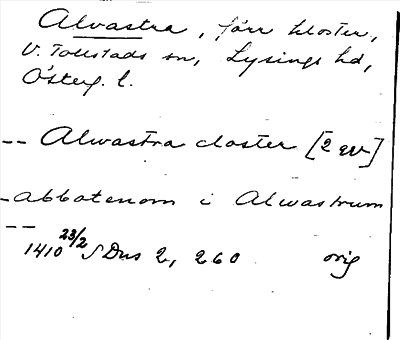 Alvastra, förr kloster,
V. Tollstads sn, Lysings hd,
Österg. l.
-- Alwastra closter [2 ggr]
- abbatenom i Alwastrum
--
1410 23/2 SDns 2, 260 orig